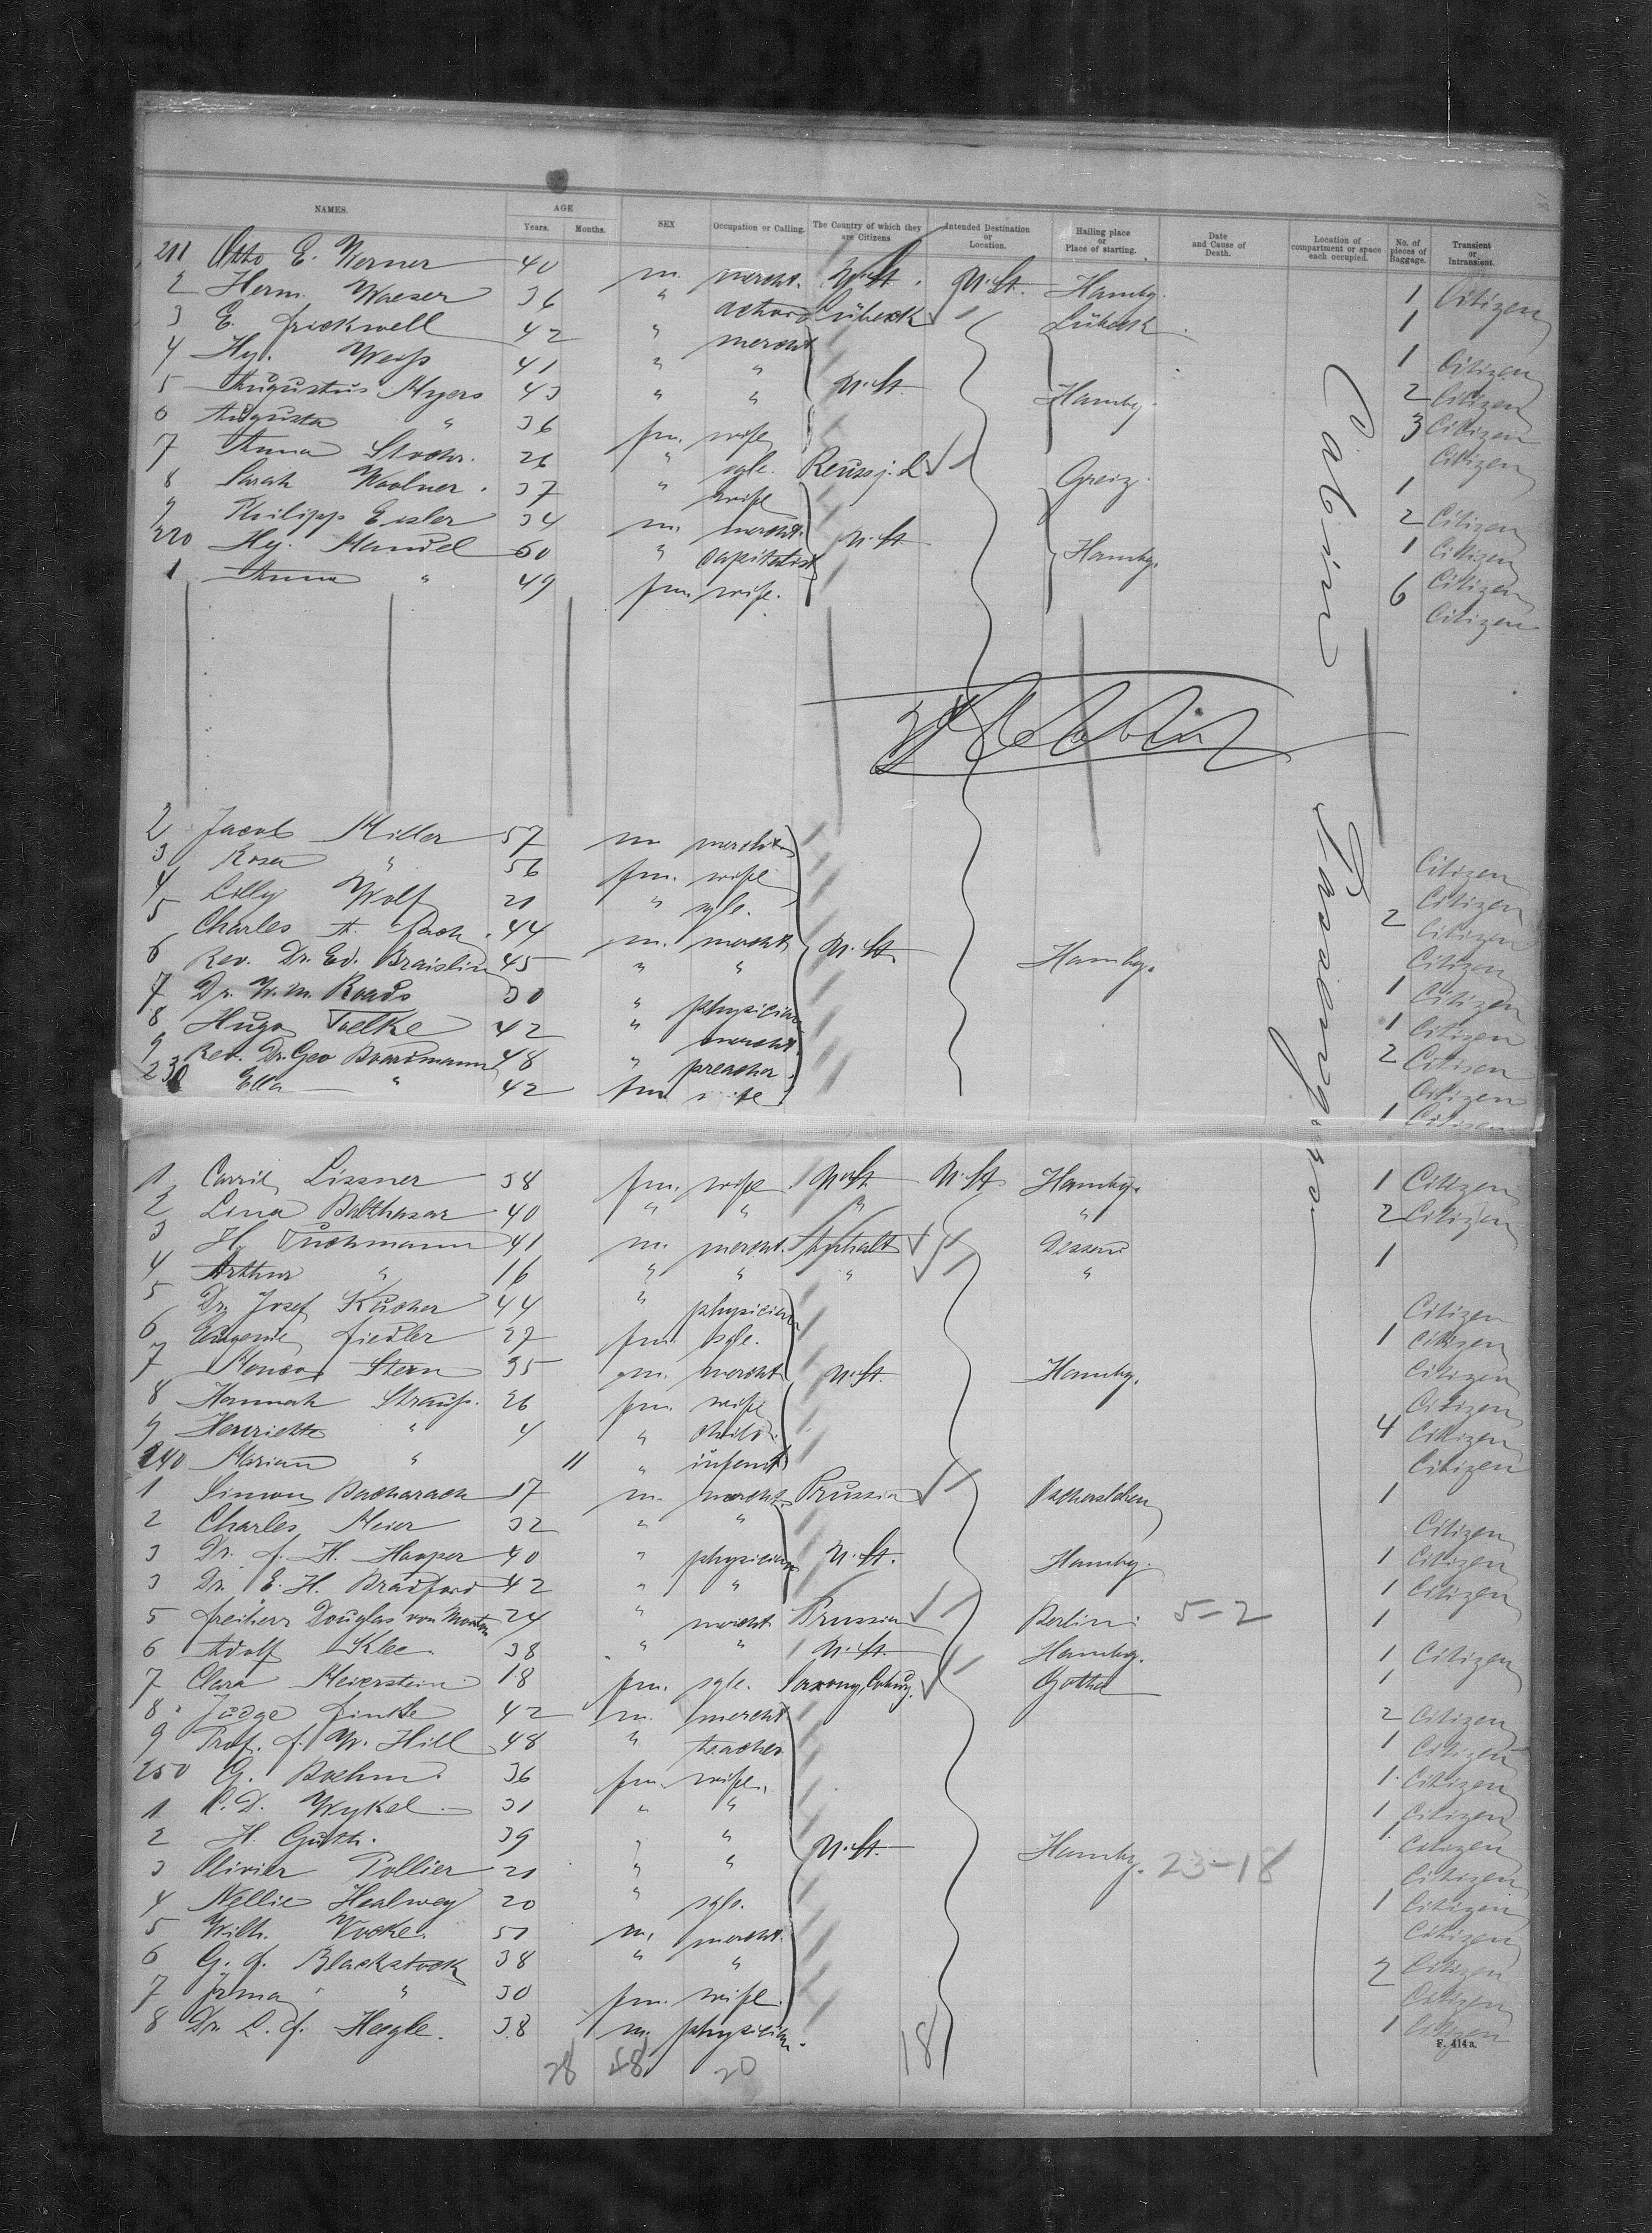 NAMES. AGE Years. Months. SEX Occupation or Calling. The Country of which they are Citizens Intended Destination or Location. Hailing place or Place of starting. Date and Cause of Death. Location of compartment or space each occupied. No. of pieces of Baggage. Transient or Intransient.
211 Otto E. Werner 40 m. mercht. U. St. U. St. Hambg. 1 Citizen
2 Herm. Waeser 36 " actor Lübeck Lübeck 1
3 E. Frickwell 42 " mercht 1 Citizen
4 Hy. Weiss 41 " " U. St. Hambg. 2 Citizen
5 Augustus Myers 43 " " 3 Citizen
6 Augusta " 36 fm. wife Citizen
7 Anna Stochr. 26 " sgle. Reuss j. L Greiz 1
8 Sarah Woolner 37 " wife 2 Citizen
9 Philipp Eisler 34 m. mercht. U. St Hambg. 1 Citizen
220 Hy. Mandel 60 " capitalist 6 Citizen
1 Anna " 49 fm wife. Citizen
Cabin Passengers
2 Jacob Miller 57 m mercht Citizen
3 Rosa " 56 fm. wife Citizen
4 Lilly Wolf 21 " sgle. 2 Citizen
5 Charles A. 44 m. mercht U. St. Hambg. Citizen
6 Rev. Dr. Ed. Braislin 45 " " 1 Citizen
7 Dr. W. m. Roads 30 " physician 1 Citizen
8 Hugo Toelke 42 " mercht. 2 Citizen
9 Rev. Dr. Geo Boardmann 48 " preacher Citizen
230 Ella " 42 fm wife 1 Citizen
1 Carrie Lissner 38 fm. wife U. St. U. St. Hambg. 1 Citizen
2 Lina Balthasar 40 " " " " 2 Citizen
3 H. Tuchmann 41 m. mercht. Anhalt Dessau 1
4 Arthur " 16 " " " "
5 Dr. Josef Kucher 44 " physician Citizen
6 Eugenie Fiedler 27 fm sgle. 1 Citizen
7 Stern 35 m. mercht U. St. Hambg. Citizen
8 Hannah Strauss. 26 fm. wife Citizen
9 Henriette " 4 " child 4 Citizen
240 Marian " 11 " infant Citizen
1 Simon Bacharach 57 m. mercht Prussia Aschersleben 1
2 Charles Meier 32 " " Citizen
3 Dr. F. H. Hooper 40 " physician U. St. Hambg. 1 Citizen
3 Dr. E. H. Bradford 42 " " 1 Citizen
5 Freiherr Douglas von 24 " mercht Prussia Berlin 5-2 1
6 Adolf Klee 38 " " U. St. Hambg. 1 Citizen
7 Clara Meierstein 18 fm. sgle. Saxony, Coburg. Gotha 1
8 Judge Finke 42 m. mercht 2 Citizen
9 Prof. F. W. Hill 48 " teacher 1 Citizen
250 G. Boehm. 36 fm. wife. 1 Citizen
1 C. D. Wykel 31 " " 1 Citizen
2 H. Guth. 39 " " U. St. Hambg. 23-18 1 Citizen
3 Olivier Pollier 21 " " Citizen
4 Nellie Healwey 20 " sgle. 1 Citizen
5 Wilh. Vocke. 51 m. mercht. Citizen
6 G. F. Blackstock 38 " " 2 Citizen
7 Irma " 30 fm. wife. Citizen
8 Dr. L. F. Hagle. 38 m. physician. 1 Citizen
F. 414a.
28 48 20 18